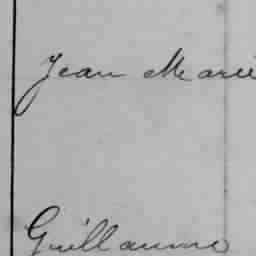 Jean Marie
Guillaume